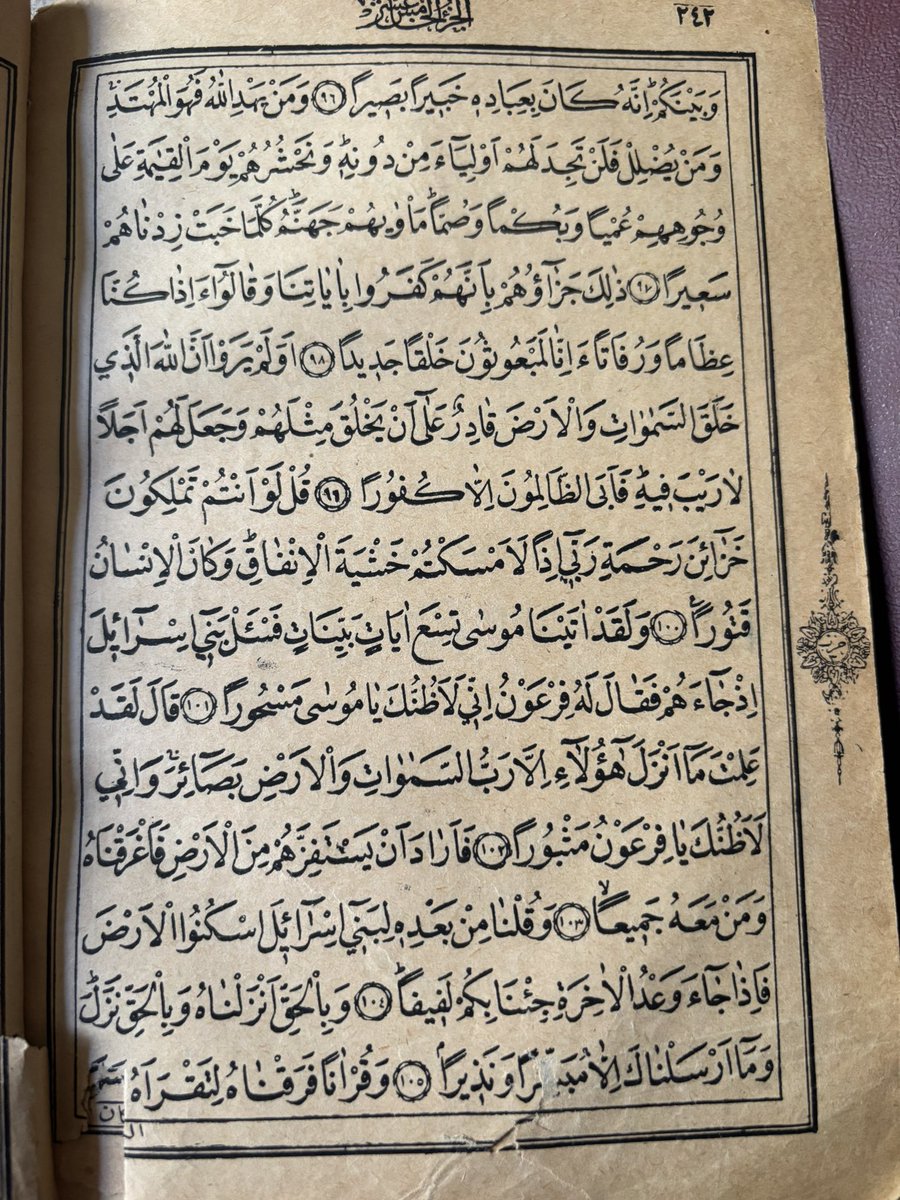 الجزء الخامس عشر ٢٤٢
وَبَيْنَكُمْ اِنَّهُ كَانَ بِعِبَادِهٖ خَبٖيرًا بَصٖيرًا ﴿٩٦﴾ وَمَنْ يَهْدِ اللّٰهُ فَهُوَ الْمُهْتَدِ
وَمَنْ يُضْلِلْ فَلَنْ تَجِدَ لَهُمْ اَوْلِيَٓاءَ مِنْ دُونِهٖ وَنَحْشُرُهُمْ يَوْمَ الْقِيٰمَةِ عَلٰى
وُجُوهِهِمْ عُمْيًا وَبُكْمًا وَصُمًّا مَاْوٰيهُمْ جَهَنَّمُ كُلَّمَا خَبَتْ زِدْنَاهُمْ
سَعٖيرًا ﴿٩٧﴾ ذٰلِكَ جَزَٓاؤُهُمْ بِاَنَّهُمْ كَفَرُوا بِاٰيَاتِنَا وَقَالُٓوا ءَاِذَا كُنَّا
عِظَامًا وَرُفَاتًا ءَاِنَّا لَمَبْعُوثُونَ خَلْقًا جَدٖيدًا ﴿٩٨﴾ اَوَلَمْ يَرَوْا اَنَّ اللّٰهَ الَّذٖي
خَلَقَ السَّمٰوَاتِ وَالْاَرْضَ قَادِرٌ عَلٰٓى اَنْ يَخْلُقَ مِثْلَهُمْ وَجَعَلَ لَهُمْ اَجَلًا
لَا رَيْبَ فٖيهِ فَاَبَى الظَّالِمُونَ اِلَّا كُفُورًا ﴿٩٩﴾ قُلْ لَوْ اَنْتُمْ تَمْلِكُونَ
خَزَٓائِنَ رَحْمَةِ رَبّٖٓي اِذًا لَاَمْسَكْتُمْ خَشْيَةَ الْاِنْفَاقِ وَكَانَ الْاِنْسَانُ
قَتُورًا ﴿١٠٠﴾ وَلَقَدْ اٰتَيْنَا مُوسٰى تِسْعَ اٰيَاتٍ بَيِّنَاتٍ فَسْـَٔلْ بَنٖٓي اِسْرَٓائٖلَ
اِذْ جَٓاءَهُمْ فَقَالَ لَهُ فِرْعَوْنُ اِنّٖي لَاَظُنُّكَ يَا مُوسٰى مَسْحُورًا ﴿١٠١﴾ قَالَ لَقَدْ
عَلِمْتَ مَٓا اَنْزَلَ هٰٓؤُلَٓاءِ اِلَّا رَبُّ السَّمٰوَاتِ وَالْاَرْضِ بَصَٓائِرَ وَاِنّٖي
لَاَظُنُّكَ يَا فِرْعَوْنُ مَثْبُورًا ﴿١٠٢﴾ فَاَرَادَ اَنْ يَسْتَفِزَّهُمْ مِنَ الْاَرْضِ فَاَغْرَقْنَاهُ
وَمَنْ مَعَهُ جَمٖيعًا ﴿١٠٣﴾ وَقُلْنَا مِنْ بَعْدِهٖ لِبَنٖٓي اِسْرَٓائٖلَ اسْكُنُوا الْاَرْضَ
فَاِذَا جَٓاءَ وَعْدُ الْاٰخِرَةِ جِئْنَا بِكُمْ لَفٖيفًا ﴿١٠٤﴾ وَبِالْحَقِّ اَنْزَلْنَاهُ وَبِالْحَقِّ نَزَلَ
وَمَٓا اَرْسَلْنَاكَ اِلَّا وَنَذٖيرًا ﴿١٠٥﴾ وَقُرْاٰنًا فَرَقْنَاهُ لِتَقْرَاَهُ